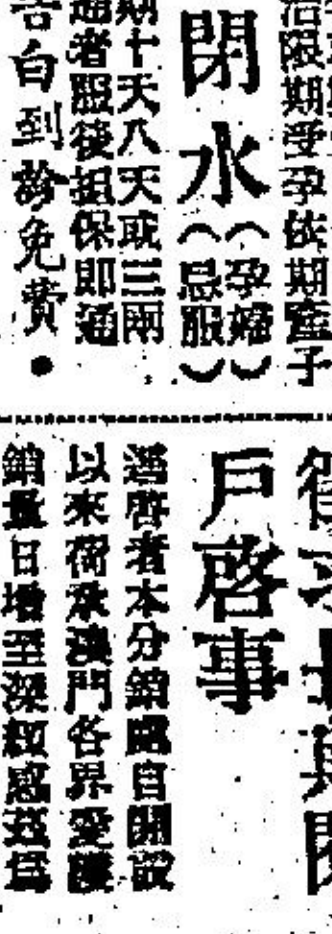 活限期受孕依期產子
閉水
（孕婦）
（忌服）
期十天八天或三兩
通者服後担保即通
告白到診免費・
戶啓事
逕啓者本分銷處自開設
以來荷承澳門各界愛護
銷量日增至深紉感茲爲